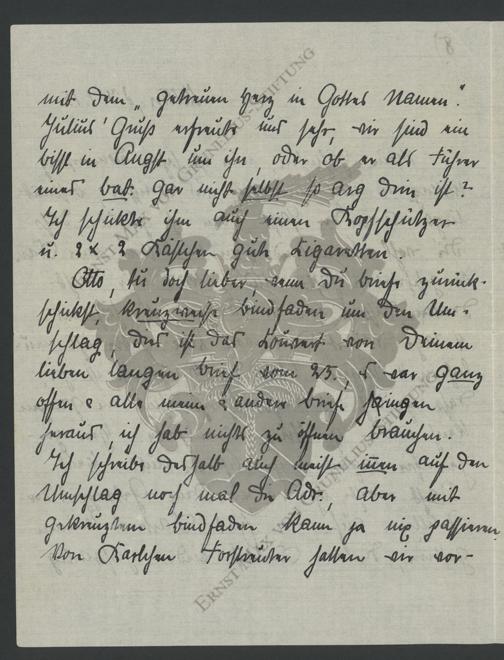 mit dem „getreuen Herz in Gottes Namen".
Julius' Gruß erfreute uns sehr, wir sind ein
bissl in Angst um ihn, oder ob er als Führer
eines bat. gar nicht selbst so arg drin ist?
Ich schickte ihm auch einen Kopfschützer
u. 2 x 2 Kästchen gute Zigaretten.
Otto, tu doch lieber, wenn Du briefe zurück-
schickst, kreuzweise bindfaden um den Um-
schlag, dies ist das Kouvert von Deinem
lieben langen brief vom 23., es war ganz
offen & alle meine & andere briefe gingen
heraus, ich hab nichts zu öffnen brauchen.
Ich schreibe deshalb auch meist innen auf den
Umschlag noch mal die Adr., aber mit
gekreuztem bindfaden kann ja nix passieren.
Von Karlchen Forstreuter hatten wir vor-
ERNST MAX VON GRUNELIUS-STIFTUNG